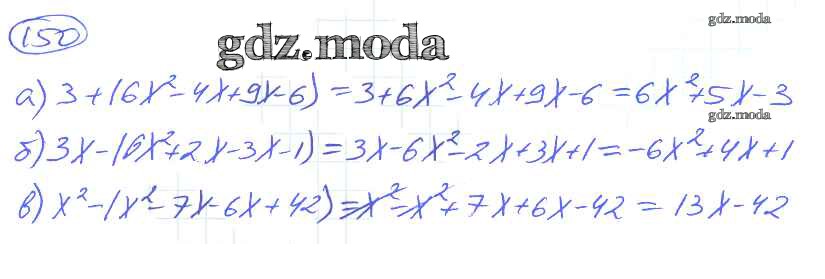 150
gdz.moda
gdz.moda
а) 3+(6x²-4x+9x-6)=3+6x²-4x+9x-6=6x²+5x-3
gdz.moda
б) 3x-(6x²+2x-3x-1)=3x-6x²-2x+3x+1=-6x²+4x+1
в) x²-(x²-7x-6x+42)=x²-x²+7x+6x-42=13x-42